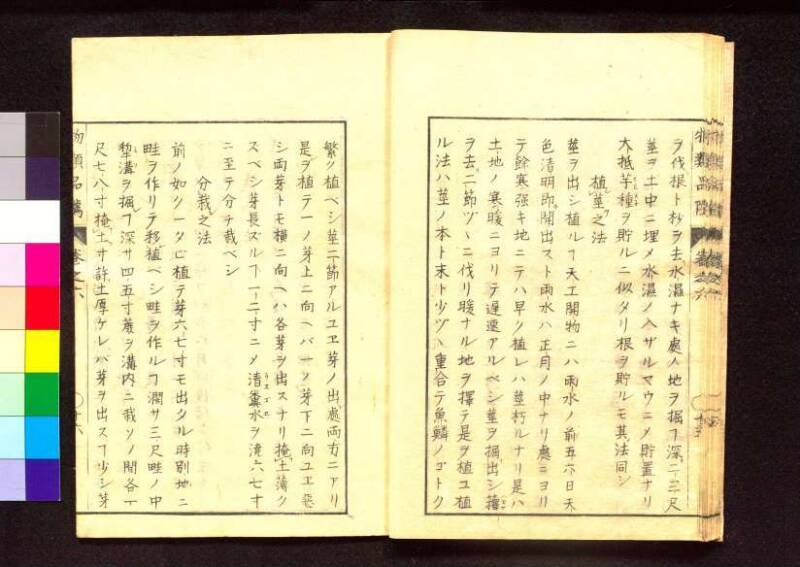 ヲ伐根ト杪ヲ去水濕ナキ處ノ地ヲ掘ヿ深二三尺
莖ヲ土中ニ埋メ水濕ノ入ザルヤウニメ貯置ナリ
大抵芋種ヲ貯ルニ似タリ根ヲ貯ルモ其法同シ
植莖之法
莖ヲ出シ植ルヿ天工開物ニハ雨水ノ前五六日天
色清明即開出スト雨水ハ正月ノ中ナリ處ニヨリ
テ餘寒强キ地ニテハ早ク植レハ莖朽ルナリ是ハ
土地ノ寒暖ニヨリテ遅速アルベシ莖ヲ掘出シ籜
ヲ去二節ヅヽニ伐リ暖ナル地ヲ擇テ是ヲ植ユ植
ル法ハ莖ノ本ト末ト少ヅヽ重合テ魚鱗ノゴトク
物類品隲 巻之六
繁ク植ベシ莖二節アルユヱ芽ノ出處両方ニアリ
是ヲ植テ一ノ芽上ニ向ヘバ一ノ芽下ニ向ユヱ惡
シ両芽トモ横ニ向ヘハ各芽ヲ出スナリ掩土薄ク
スベシ芽長ズルヿ一二寸ニメ清糞水ヲ澆六七寸
ニ至テ分チ栽ベシ
分栽之法
前ノ如クータビ植テ芽六七寸モ出タル時別地ニ
畦ヲ作リテ移植ベシ畦ヲ作ルヿ濶サ三尺畦ノ中
犂溝ヲ掘ヿ深サ四五寸蔗ヲ溝内ニ栽ソノ間各一
尺七八寸掩土サ許土厚ケレバ芽ヲ出スヿ少シ芽
物類品隲 巻之六